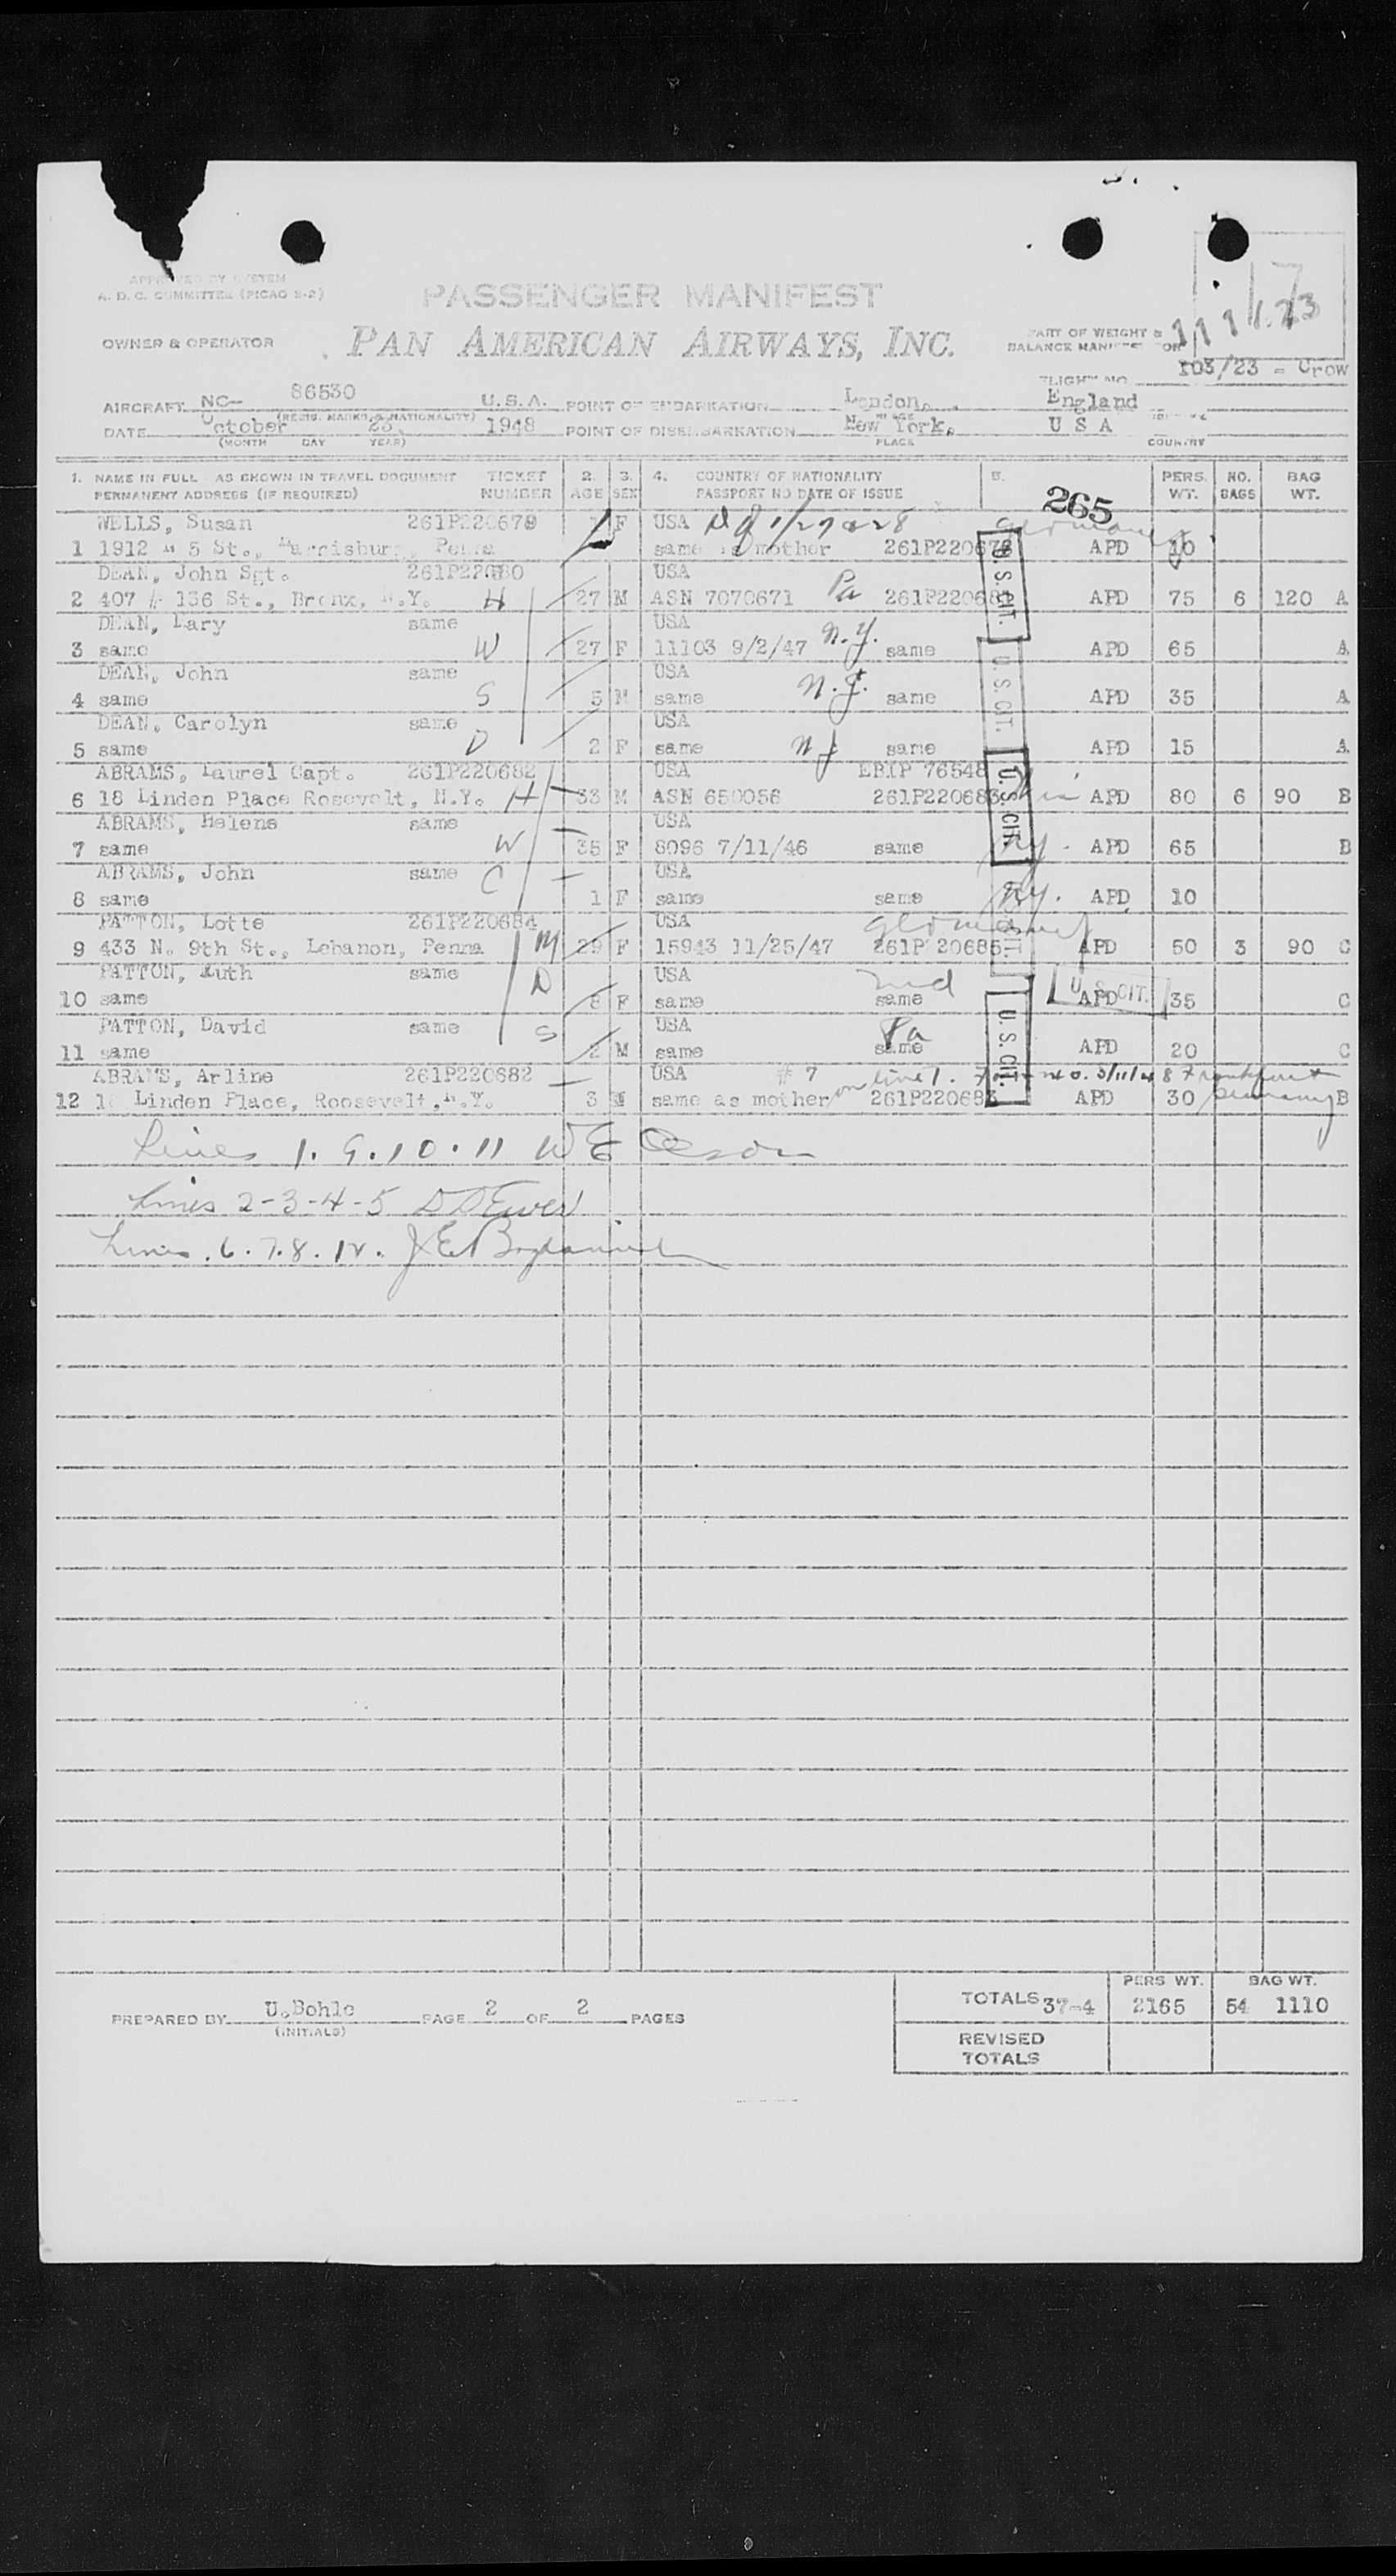 APPROVED BY SYSTEM
A. D. C. COMMITTEE (PICAO S-2)
PASSENGER MANIFEST
OWNER & OPERATOR PAN AMERICAN AIRWAYS, INC.
PART OF WEIGHT &
BALANCE MANIFEST FOR
FLIGHT NO. 103/23 - Crow
AIRCRAFT NC- 86530 U.S.A. POINT OF EMBARKATION London, England
(REGIS. MARKS & NATIONALITY)
DATE October 23, 1948 POINT OF DISEMBARKATION New York, U S A
(MONTH DAY YEAR) PLACE COUNTRY
1. NAME IN FULL AS SHOWN IN TRAVEL DOCUMENT TICKET 2. 3. 4. COUNTRY OF NATIONALITY 5. PERS. NO. BAG
PERMANENT ADDRESS (IF REQUIRED) NUMBER AGE SEX PASSPORT NO DATE OF ISSUE WT. BAGS WT.
265
WELLS, Susan 261P220679 F USA Germany
1 1912 N 5 St., Harrisburg, Penna same as mother 261P220678 APD 10
DEAN, John Sgt. 261P220680 USA
2 407 E 136 St., Bronx, N.Y. H 27 M ASN 7070671 Pa 261P220681 APD 75 6 120 A
DEAN, Mary same USA
3 same W 27 F 11103 9/2/47 N.Y. same APD 65 A
DEAN, John same USA
4 same S 5 M same N.J. same APD 35 A
DEAN, Carolyn same USA
5 same D 2 F same NJ same APD 15 A
ABRAMS, Laurel Capt. 261P220682 USA EBIP 76548
6 18 Linden Place Rosevelt, N.Y. H 33 M ASN 650056 261P220683 APD 80 6 90 B
ABRAMS, Helene same USA
7 same W 35 F 8096 7/11/46 same NY. APD 65 B
ABRAMS, John same USA
8 same C 1 F same same NY. APD 10
PATTON, Lotte 261P220684 USA Germany
9 433 N. 9th St., Lebanon, Penna M 29 F 15943 11/25/47 261P220685 APD 50 3 90 C
PATTON, Ruth same USA
10 same D 8 F same same APD 35 C
PATTON, David same USA Pa
11 same S 2 M same same APD 20 C
ABRAMS, Arline 261P220682 USA # 7
12 18 Linden Place, Roosevelt, N.Y. 3 M same as mother on line 261P220683 APD 30 Germany B
U. S. CIT.
U. S. CIT.
U. S. CIT.
U. S. CIT.
U. S. CIT.
Lines 1. 9. 10. 11 W E Olson
Lines 2-3-4-5
Lines. 6. 7. 8. 12. J E
PREPARED BY U.Bohle PAGE 2 OF 2 PAGES
(INITIALS)
PERS WT. BAG WT.
TOTALS 37-4 2165 54 1110
REVISED
TOTALS